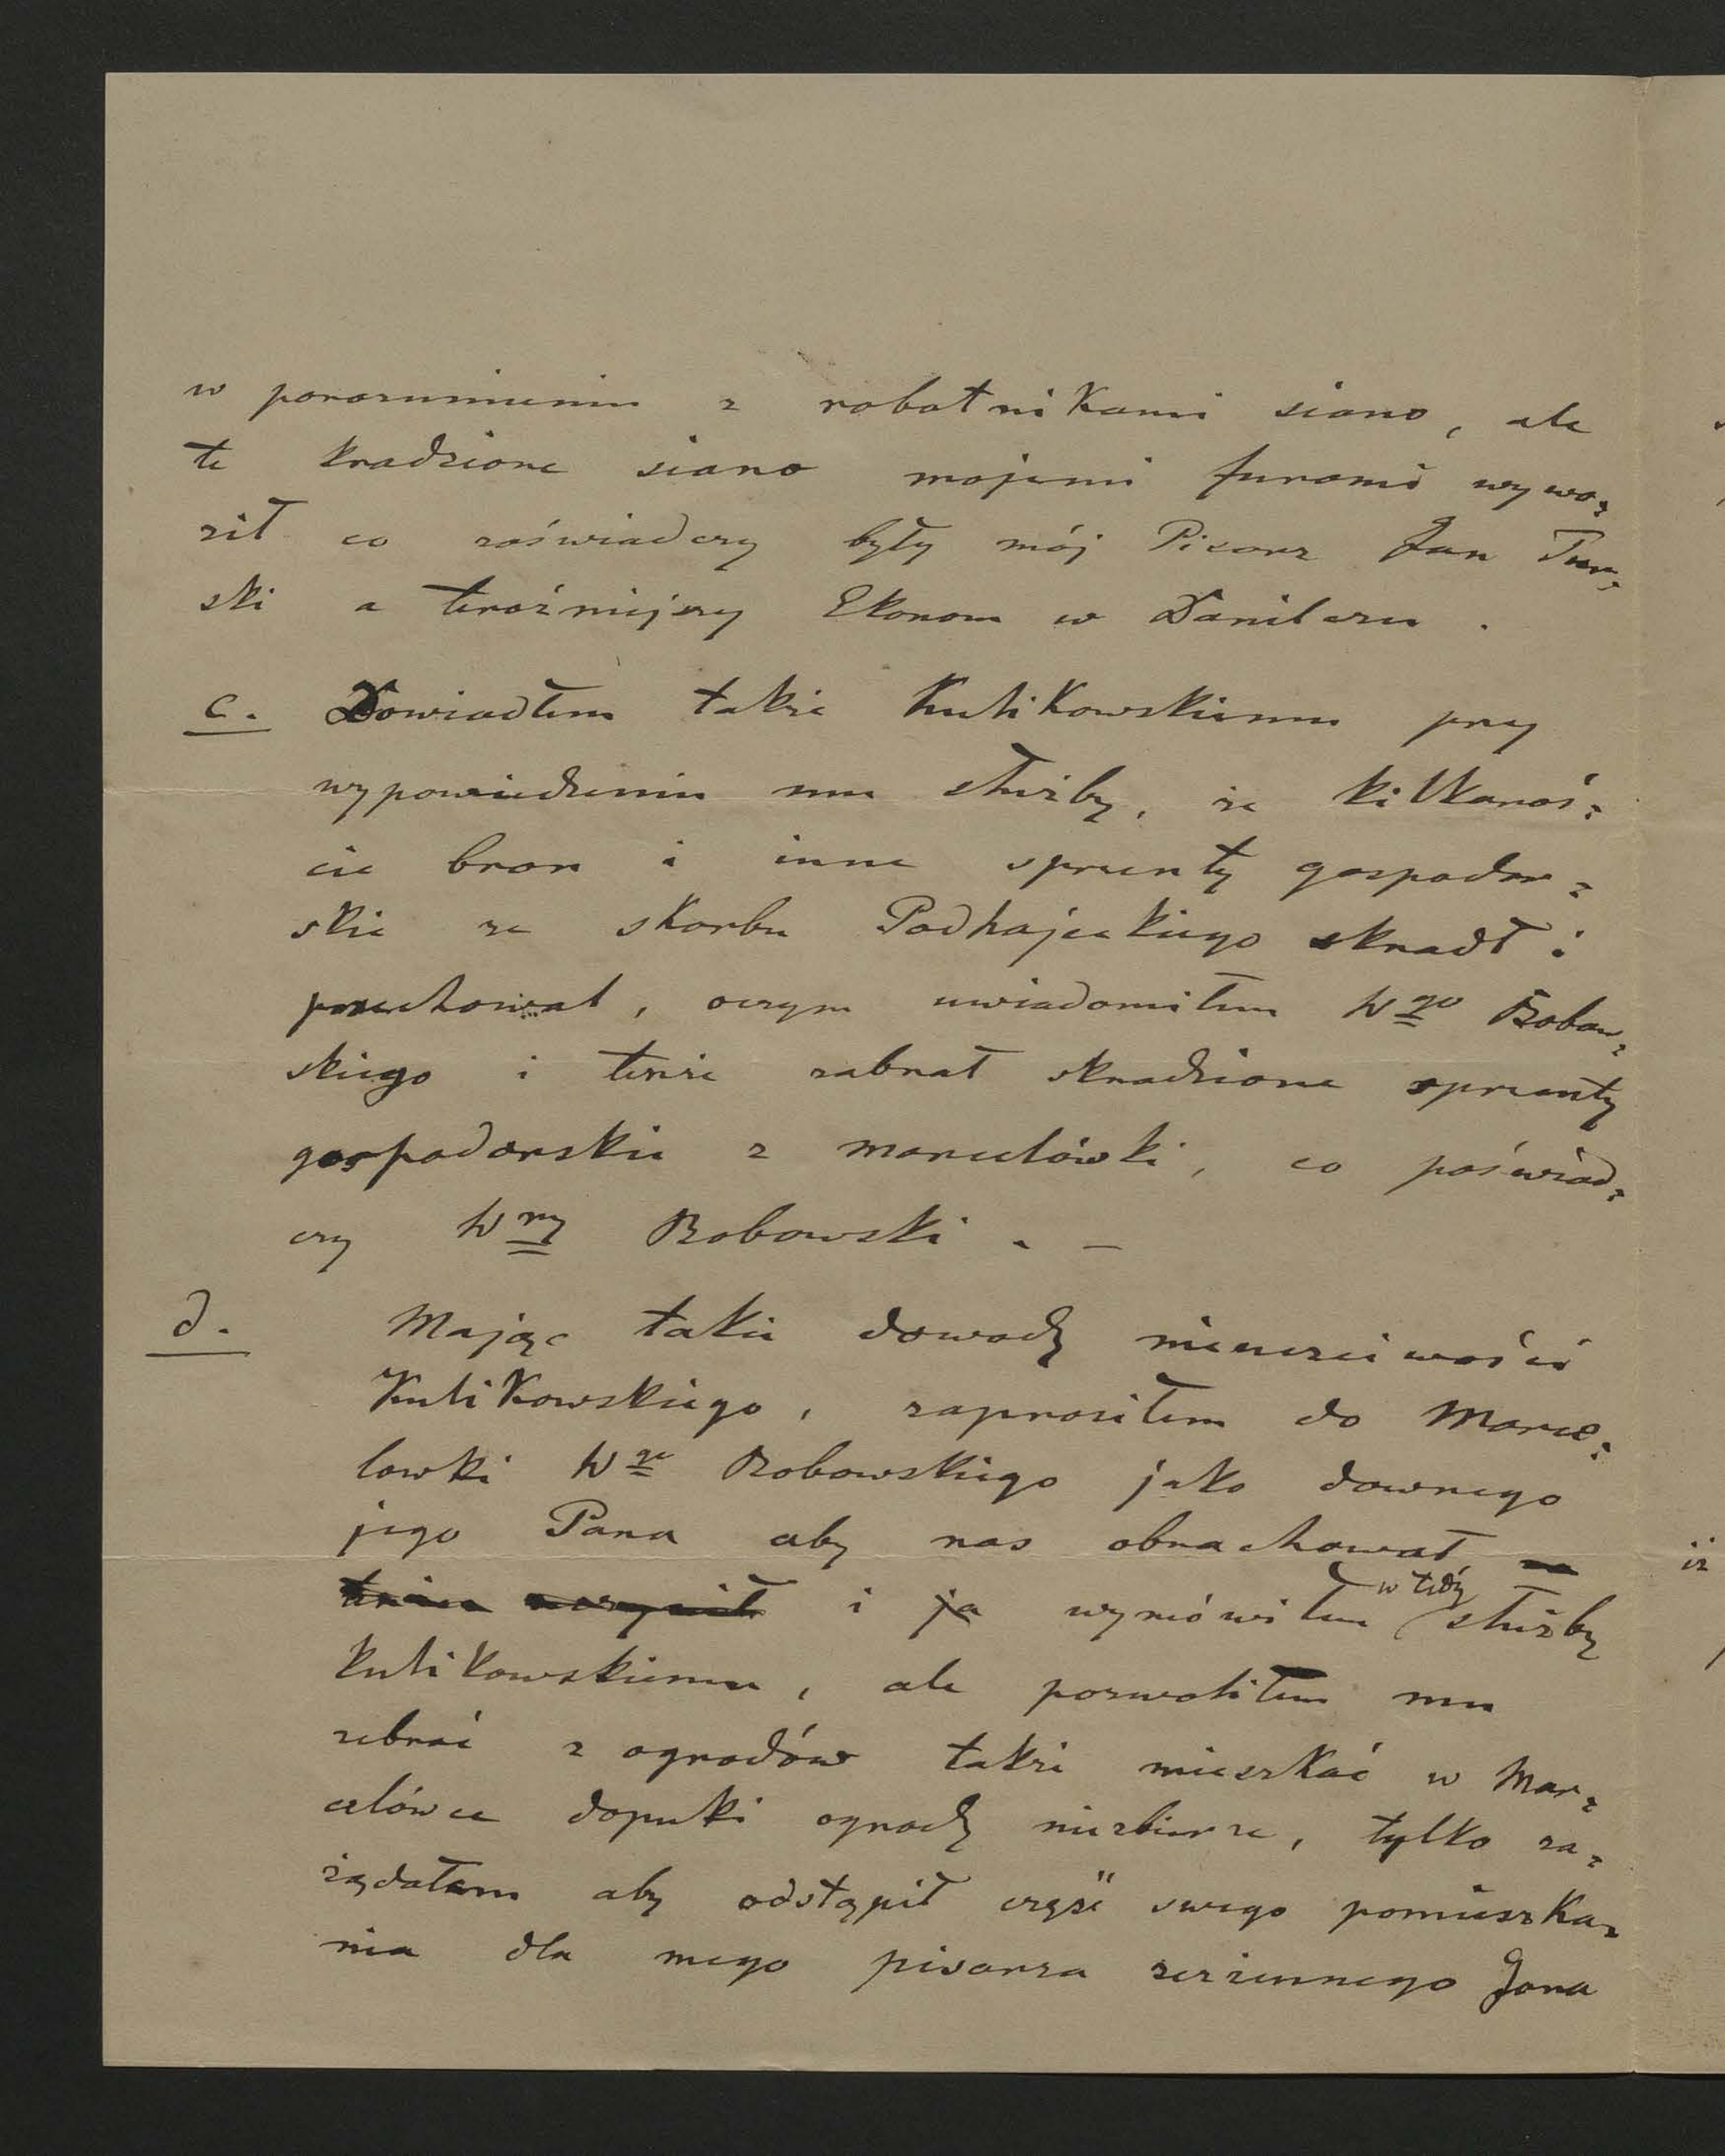 w porozumieniu z robotnikami siano, ale
te kradzione siano mojemi furami wywo=
ził co zaświadczy były mój Pisarz Jan Tur=
ski a teraźniejszy Ekonom w Danilczu.
c. Dowiodłem także Kulikowskiemu przy
wypowiedzeniu mu służby, że kilkanaś=
cie bron i inne sprzenty gospodar=
skie ze skarbu Podhajeckiego skradł i
przechował, oczym uwiadomiłem Wgo Bobow=
skiego i tenże zabrał skradzione sprzenty
gospodarskie z marcelówki, co poświad=
czy Wny Bobowski. —
d. Mając takie dowody nieuczciwości
Kulikowskiego, zaprosiłem do Marce=
lowki Wgo Bobowskiego jako dawnego
jego Pana aby nas obrachował,
i ja wymówiłem w tedy służby
Kulikowskiemu, ale pozwoliłem mu
zebrać z ogrodów także mieszkać w Mar=
celówce dopuki ogrody niezbierze, tylko za=
żądałem aby odstąpił część swego pomieszka=
nia dla mego pisarza Jana